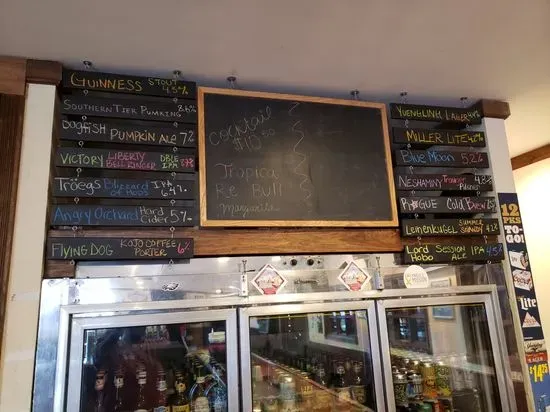 GUINNESS STOUT 4.5%
SOUTHERN TIER PUMKING 8.6%
Dogfish PUMPKIN ALE 7%
VICTORY LIBERTY BELL RINGER DBLE IPA
TRÖEGS BLIZZARD OF HOPS IPA
ANGRY ORCHARD HARD CIDER 5%
FLYING DOG KUJO COFFEE PORTER
Cocktail
$10.50
Tropica
Re Bull
Margarita
YUENGLING LAGER
MILLER LITE
BLUE MOON 5.2%
NESHAMINY
COLD BREW
LEINENKUGEL SUMMER SHANDY 4.2%
Lord Hobo SESSION ALE IPA 4.5%
12
PKS
TO-
GO!
Lite